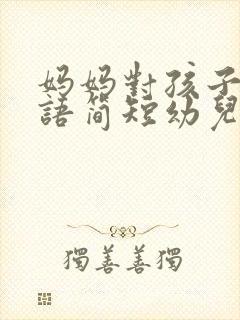 妈妈對孩子
語简短幼兒
獨善善獨